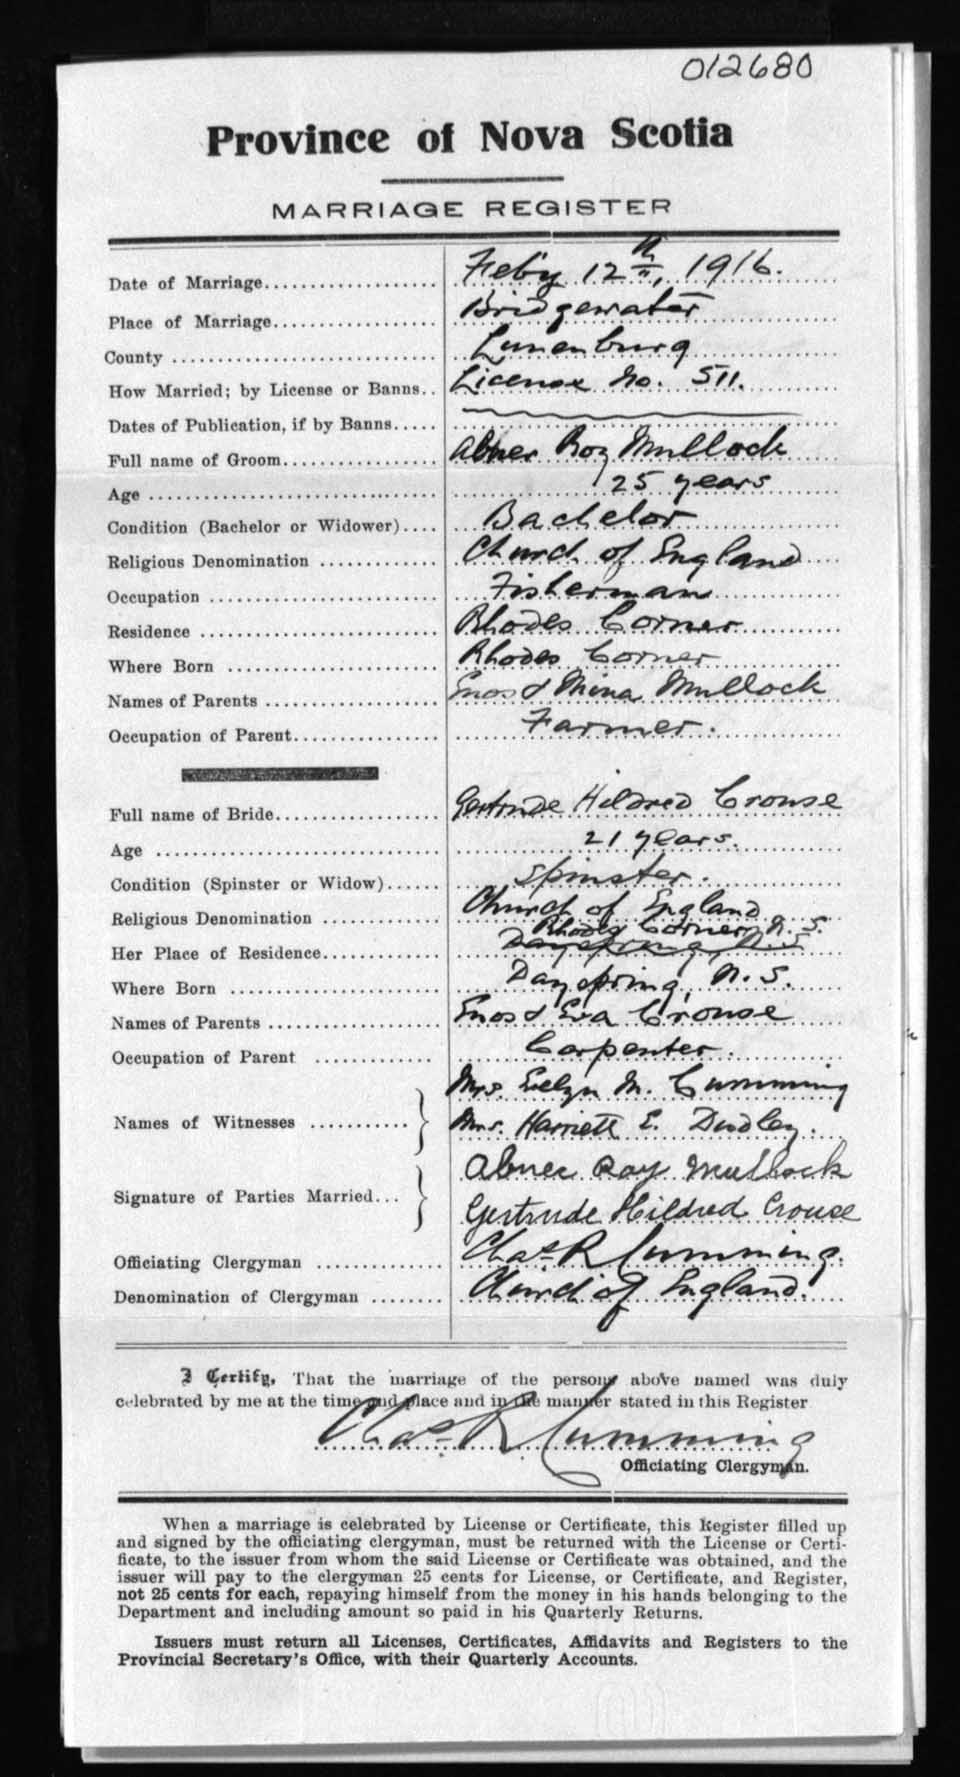 012680
Province of Nova Scotia
MARRIAGE REGISTER
Date of Marriage.................... Feb'y 12th, 1916.
Place of Marriage................... Bridgewater
County ............................ Lunenburg
How Married; by License or Banns.. License No. 511.
Dates of Publication, if by Banns.....
Full name of Groom.................. Abner Roy Mullock
Age ................................ 25 years
Condition (Bachelor or Widower).... Bachelor
Religious Denomination ............. Church of England
Occupation ......................... Fisherman
Residence .......................... Rhodes Corner
Where Born ......................... Rhodes Corner
Names of Parents ................... Enos & Mina Mullock
Occupation of Parent................ Farmer.
Full name of Bride.................. Gertrude Hildred Crouse
Age ................................ 21 years.
Condition (Spinster or Widow)...... Spinster.
Religious Denomination ............. Church of England
Rhodes Corner, N. S.
Her Place of Residence............. Dayspring, N. S.
Where Born ......................... Dayspring, N. S.
Names of Parents ................... Enos & Eva Crouse
Occupation of Parent ............... Carpenter.
Mrs. Evelyn M. Cumming
Names of Witnesses ........... Mrs. Harriett E. Dudley.
Abner Roy Mullock
Signature of Parties Married... Gertrude Hildred Crouse
Officiating Clergyman .............. Chas. R Cumming.
Denomination of Clergyman ........ Church of England.
I Certify, That the marriage of the persons above named was duly
celebrated by me at the time and place and in the manner stated in this Register
Chas. R Cumming
Officiating Clergyman.
When a marriage is celebrated by License or Certificate, this Register filled up
and signed by the officiating clergyman, must be returned with the License or Certi-
ficate, to the issuer from whom the said License or Certificate was obtained, and the
issuer will pay to the clergyman 25 cents for License, or Certificate, and Register,
not 25 cents for each, repaying himself from the money in his hands belonging to the
Department and including amount so paid in his Quarterly Returns.
Issuers must return all Licenses, Certificates, Affidavits and Registers to the
Provincial Secretary's Office, with their Quarterly Accounts.